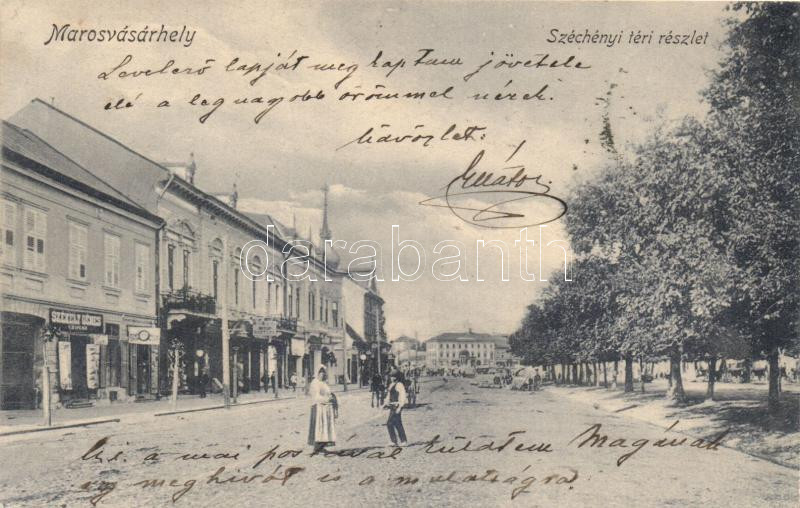 Marosvásárhely
Széchényi téri részlet
Levelező lapját meg kaptam jövetele
elé a legnagyobb örömmel nézek.
Üdvözlet:
darabanth
a mai postával küldtem Magának
egy meghívót is a mulatságra